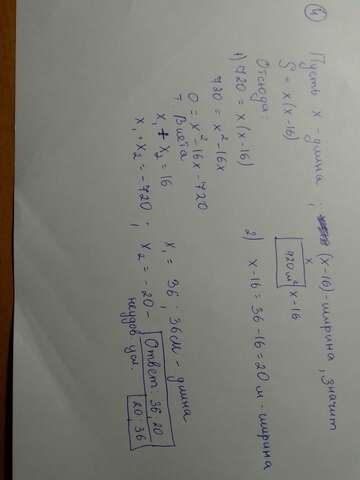 4
Пусть x - длина ; (x-16) - ширина, значит
S = x(x-16)
x
720 м² x-16
Отсюда:
1) 720 = x(x-16)
720 = x²-16x
0 = x²-16x-720
т. Виета
x₁ + x₂ = 16
x₁ · x₂ = -720 ;
x₁ = 36 ; 36 см - длина
x₂ = -20 - неудов. усл.
2) x-16 = 36-16 = 20 м - ширина
Ответ 36, 20
20; 36